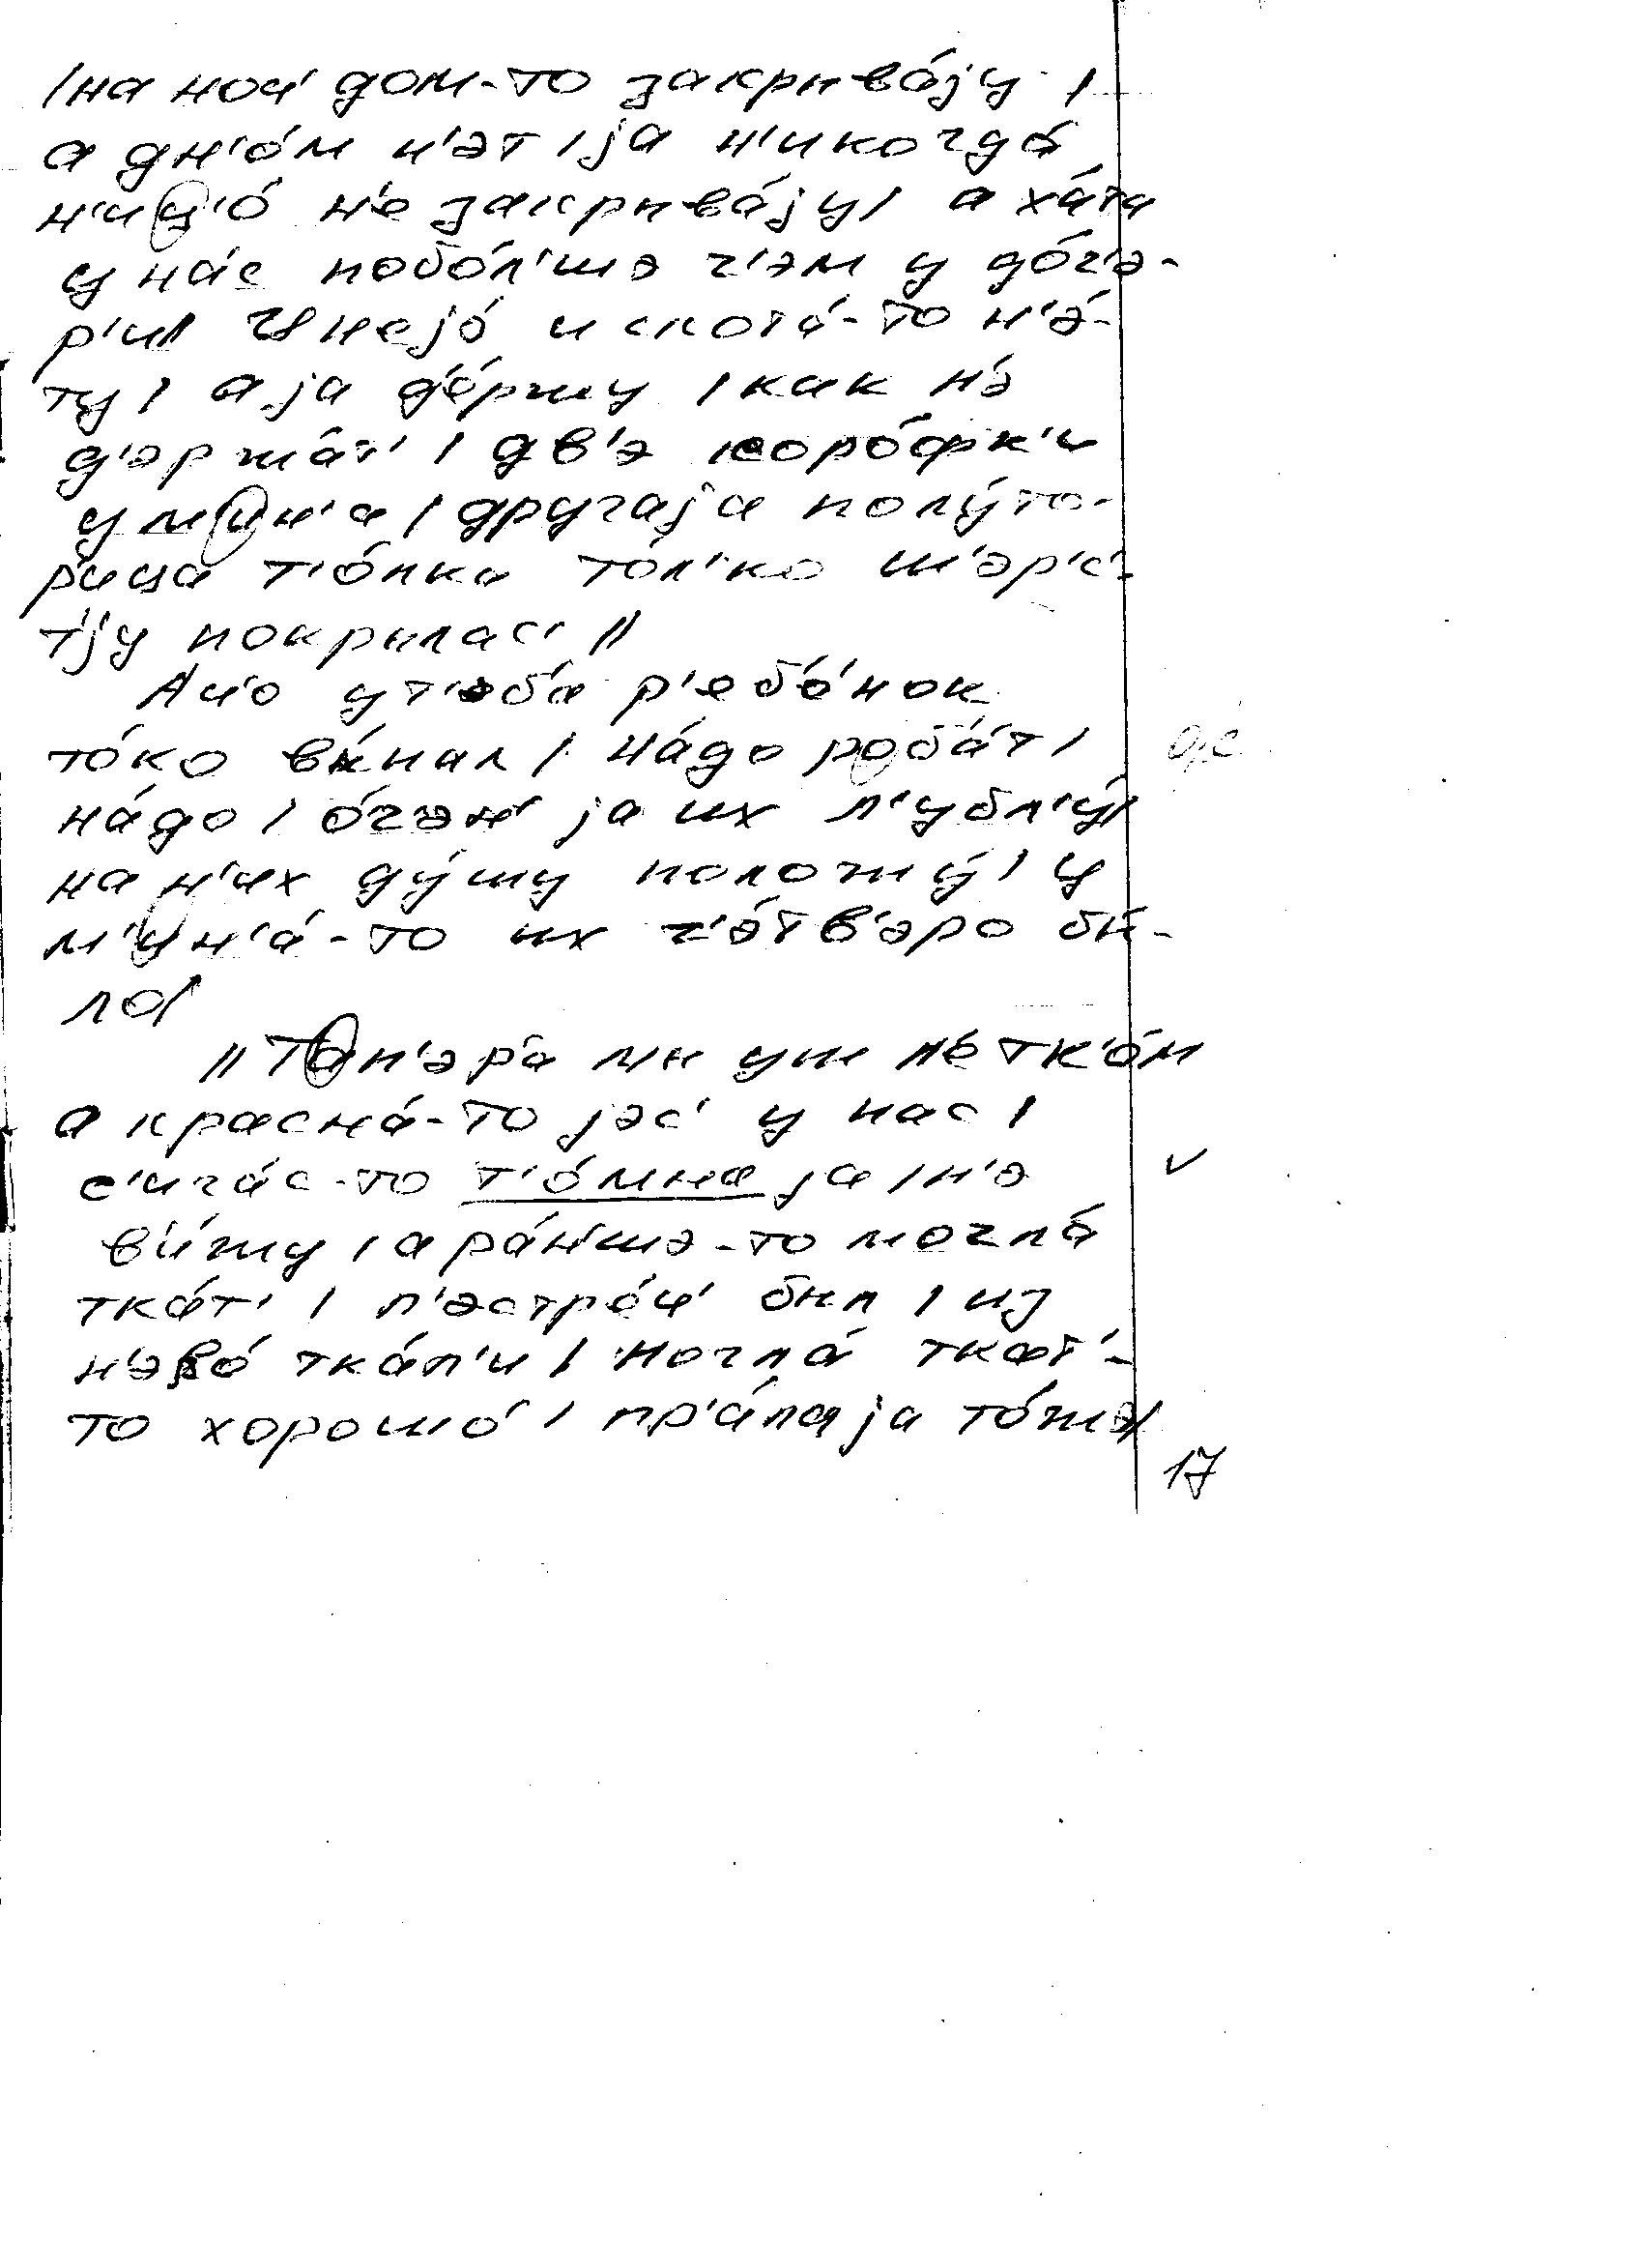 /на ноч' дом-то закрыва́jу /
а дн'о́м н'эт / ja н'икогда́
н'ичо́ н'е закрыва́jу / а ха́та
у на́с побо́л'шэ ч'эм у до́ч'э-
р'и // У неjо́ и скота́-то н'э́-
ту / а ja д'е́ржу / как н'э
д'эржа́т' / дв'э коро́фк'и
у м'ин'а / другаja полу́то-
р'ица т'о́лка то́л'ко ш'эр'с'-
т'jу покрылас' //
А ч'о у т'эб'а р'еб'о́нок
то́ко вы́пал / на́до роба́т' /
на́до / о́ч'эн' ja их л'убл'у́ /
на н'их ду́шу положу́ / у
м'ин'а́-то их ч'э́тв'эро бы́-
ло /
// Т'ап'эр'а мы уш н'е тк'о́м
а красна́-то jэс' у нас /
с'ича́с-то т'о́мна ja / н'э
в'и́жу / а ра́н'шэ-то могла́
тка́т' / п'эстр'а́ч' был / из
н'эво́ тка́л'и / могла́ ткат'-
то хорошо́ / пр'а́ла ja то́жэ /
17